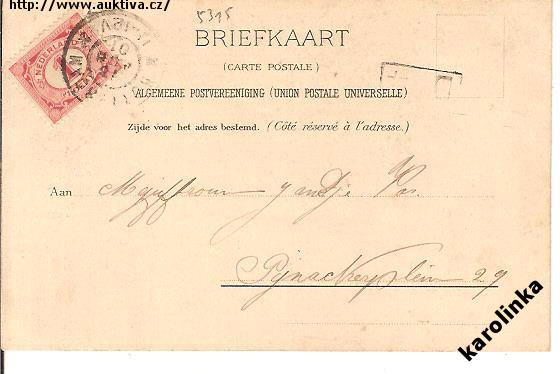 http://www.auktiva.cz/
5315
NEDERLAND
BRIEFKAART
(CARTE POSTALE)
ALGEMEENE POSTVEREENIGING (UNION POSTALE UNIVERSELLE)
Zijde voor het adres bestemd. (Côté réservé à l'adresse.)
Aan Mejuffrouw Jansje Vos.
Pijnackerplein 29
karolinka